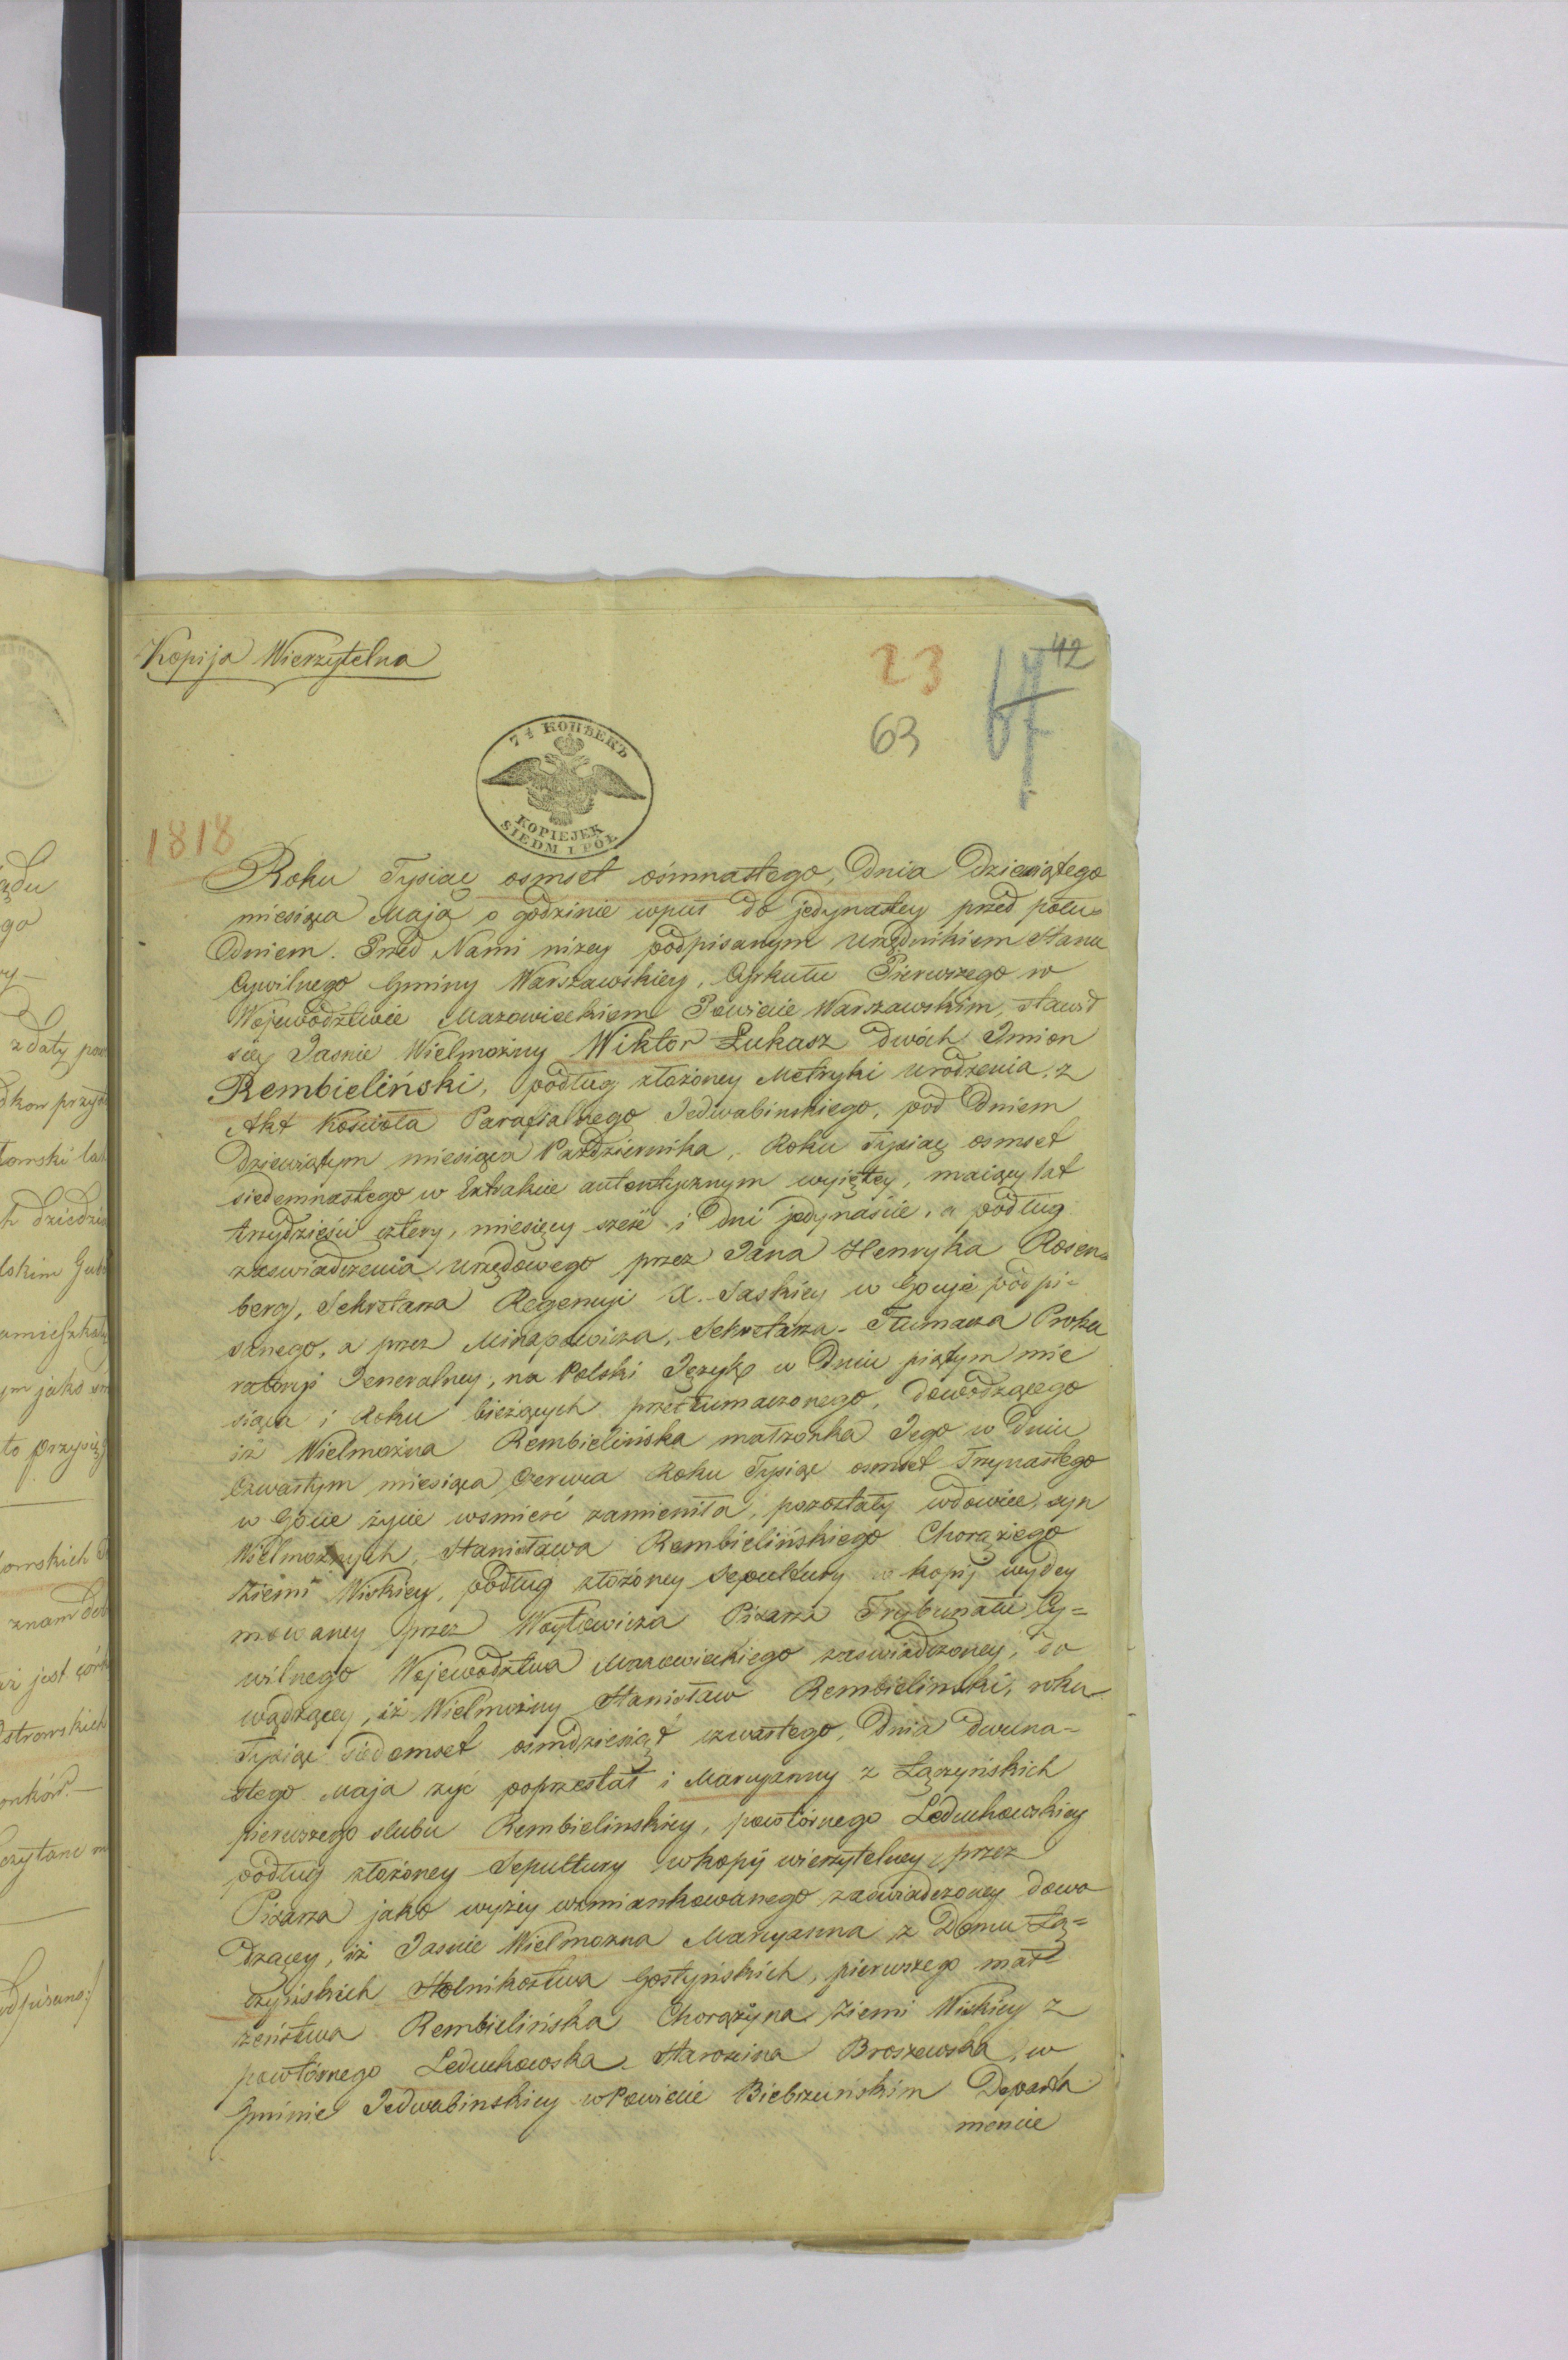 Kopija Wierzytelna
23
42
63
7½ КОПѢЕКЪ
KOPIEJEK
SIEDM I PÓŁ
1818
Roku Tysiąc osmset ośmnastego, Dnia Dziewiątego
miesiąca Maja o godzinie wpuł do jedynastey przed połu-
dniem. Przed Nami niżey podpisanym Urzędnikiem Stanu
Cywilnego Gminy Warszawskiey, Cyrkułu Pierwszego w
Województwie Mazowieckiem Powiecie Warszawskim, stawił
się Jasnie Wielmożny Wiktor Łukasz dwóch Imion
Rembieliński, podług złożoney Metryki urodzenia, z
Akt Kościoła Parafialnego Jedwabinskiego, pod Dniem
Dziewiątym miesiąca Października, Roku Tysiąc osmset
siedemnastego w Extrakcie autentycznym wyiętey, maiący lat
trzydzieści cztery, miesięcy sześć i Dni jedynaście, a podług
zaswiadczenia urzędowego przez Jana Henryka Rosen-
berg, Sekretarza Regencyi K. Saskiey w Gocyie podpi-
sanego, a przez Minapowicza, Sekretarza-Tłumacza Proku
ratoryi Jeneralney, na Polski Język w Dniu piątym mie
siąca i Roku bieżących przetłumaczonego, Dowodzącego
iż Wielmożna Rembielińska małżonka Jego w Dniu
Czwartym miesiąca Czerwca Roku Tysiąc osmset Trzynastego
w Gocie życie wsmierć zamieniła, pozostały wdowiec, syn
Wielmożnych, Stanisława Rembielińskiego Chorążego
Ziemi Wiskiey, podług złożoney Sepultury w kopij wydey
mowaney przez Woytowicza Pisarza Trybunału Cy=
wilnego Województwa Mazowieckiego zaswiadczoney, do
wodzącey, iż Wielmożny Stanisław Rembielinski, roku
Tysiąc siedemset osmdziesiąt czwartego, Dnia dwuna-
stego Maja żyć poprzestał i Maryanny z Łączyńskich
pierwszego slubu Rembielinskiey, powtórnego Leduchowskiey
podług złożoney Sepultury w kopij wierzytelney, przez
Pisarza jako wyżey wzmiankowanego zaswiadczoney dowo
dzącey, iż Jasnie Wielmożna Maryanna z Domu Łą=
czyńskich Stolnikostwa Gostyńskich, pierwszego mał
żeństwa Rembielińska Chorążyna Ziemi Wiskiey z
powtórnego Leduchowska Starościna Broszewska, w
Gminie Jedwabinskiey w Powiecie Biebrzuńskim Departa
mencie